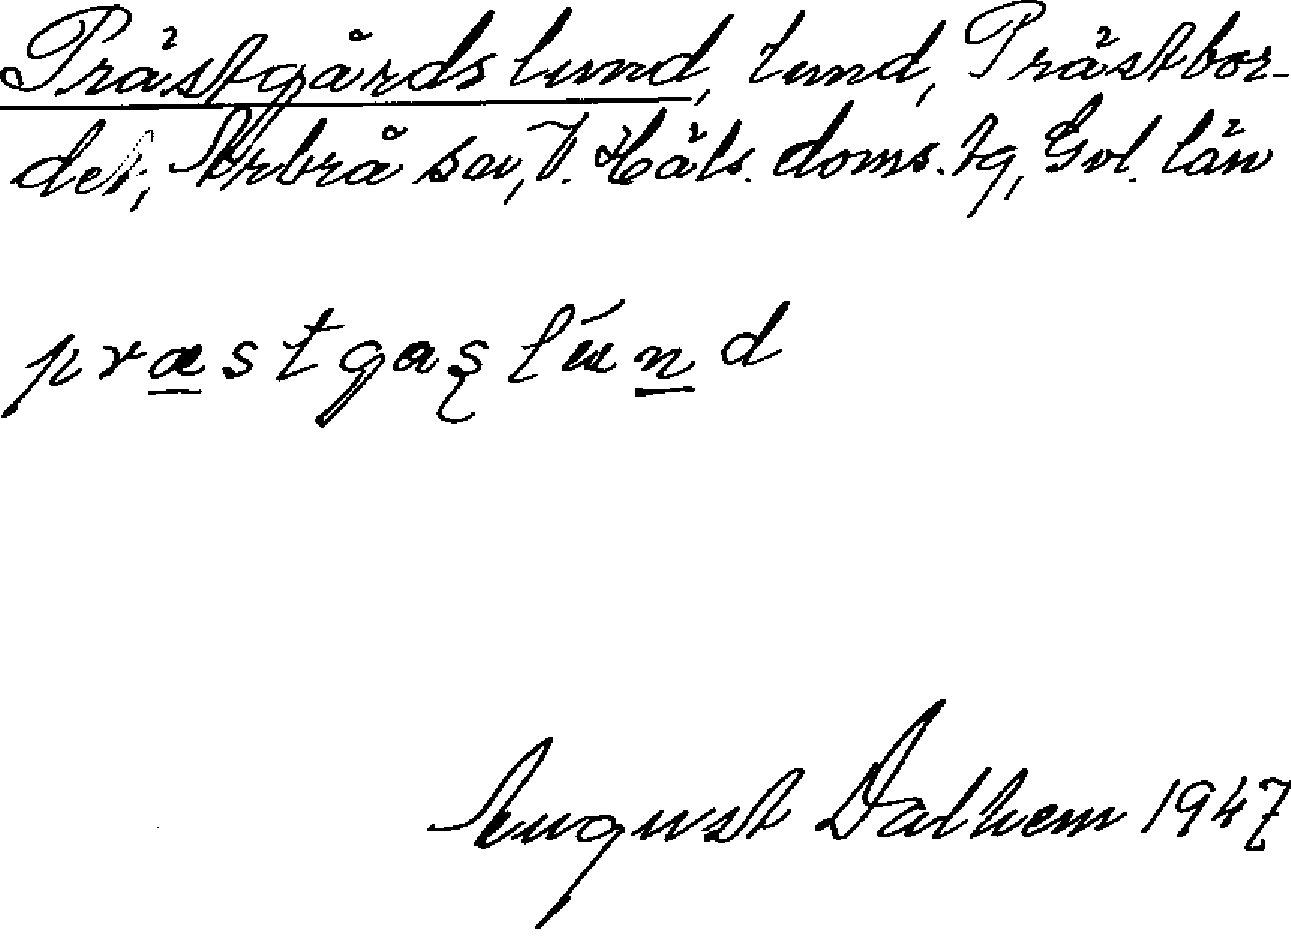 Prästgårdslund, lund, Prästbor-
det, Arbrå sn, V. Häls. doms. tg, Gvl. län
præstgaslúnd
August Dalhem 1947